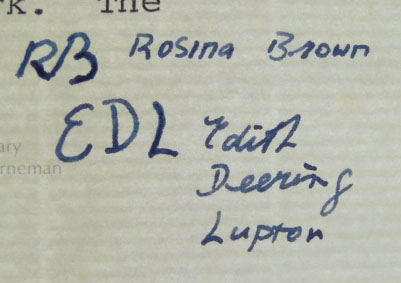 rk. The
RB Rosina Brown
EDL Edith
Deering
Lupton
ary
rneman